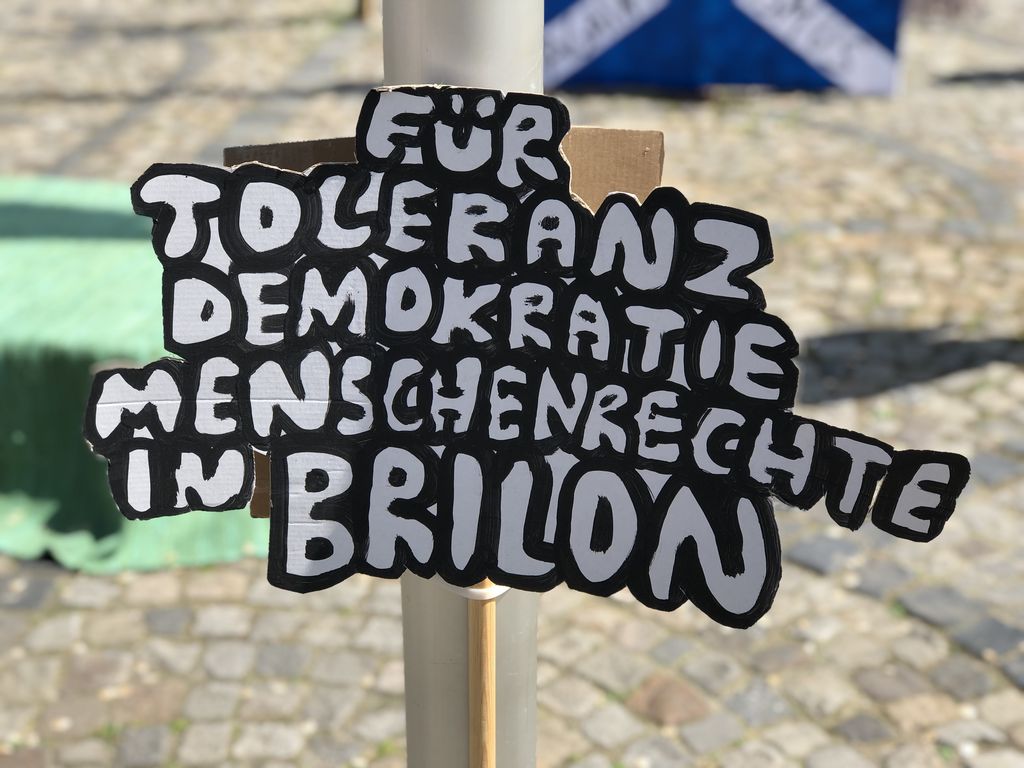 FÜR
TOLERANZ
DEMOKRATIE
MENSCHENRECHTE
IN BRILON